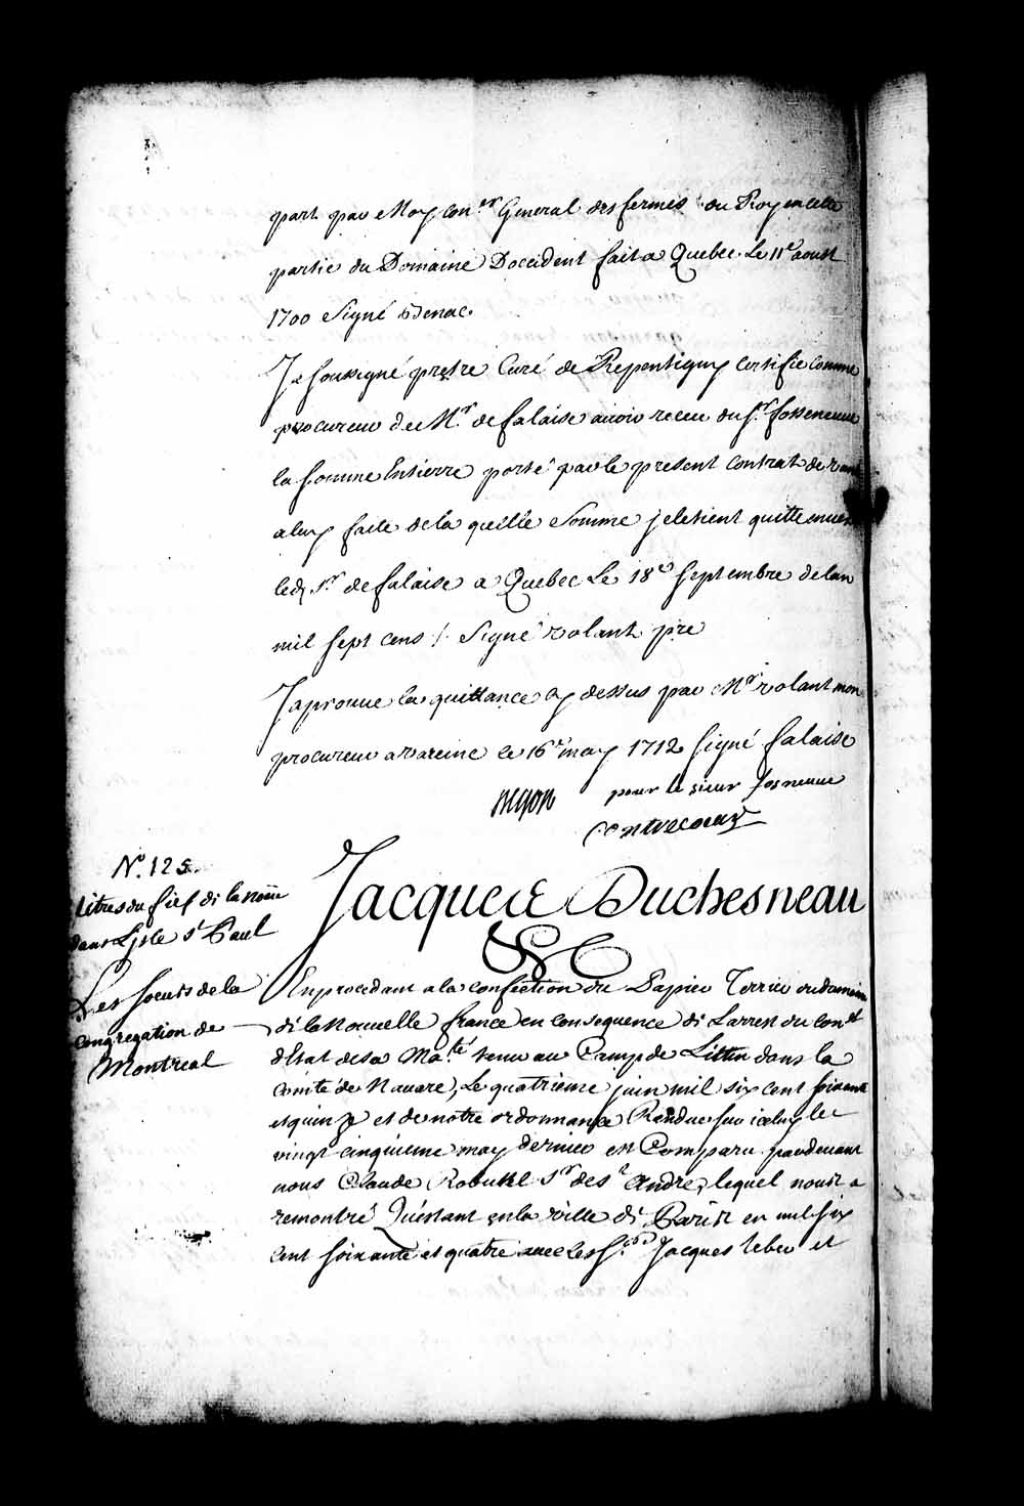 part par Moy con.er General des fermes du Roy en cette
partie du Domaine Doccident fait a Quebec Le 11e aoust
1700 Signé
Je soussigné prestre Curé de Repentigny certifie comme
procureur de Mr. de falaise avoir receu du Sr. fosseneuue
la somme Entierre porté par le present Contrat de
a luy faite de la quelle Somme je le tient quitte
led. Sr. de falaise a Quebec Le 18e septembre de lan
mil sept cens /. Signé volant pre
Japrouue la quittance cy dessus par Mr volant mon
procureur a vareine ce 16e may 1712 signé falaise
Begon pour le sieur fosneuue
Contrecoeur
No. 125.
titres du fief di la
dans Lisle st Paul
Les soeurs de la
Congregation de
Montreal
Jacques Duchesneau
&c
En procedant a la confection du Papier Terrier du domaine
di la Nouuelle france en consequence di Larrest du conel
dEstat de sa Ma.té tenu au Camp de Littin dans la
comte de Nauare, Le quatrieme juin mil six cent soixante
et quinze et de notre ordonnance Rendue sur iceluy le
vingt cinquieme may dernier est Comparu pardeuant
nous Claude Robutel Sr de St André, lequel nous a
remontré Quéstant en la ville di Paris en mil six
cent soixante et quatre auec les Srs Jacques leber et